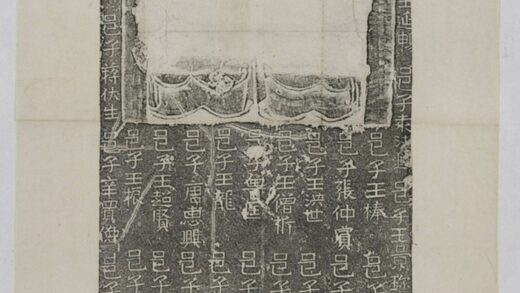 王延 邑子 邑子王
邑子王棒 邑子
邑子張仲賓 邑子
邑子王洪世 邑子
邑子王僧 邑子
邑子
邑子王龍 邑子
邑子唐忠興 邑子
邑子王超賢 邑子
邑子王振 邑子
邑子蔣伏生 邑子羊貴 邑子